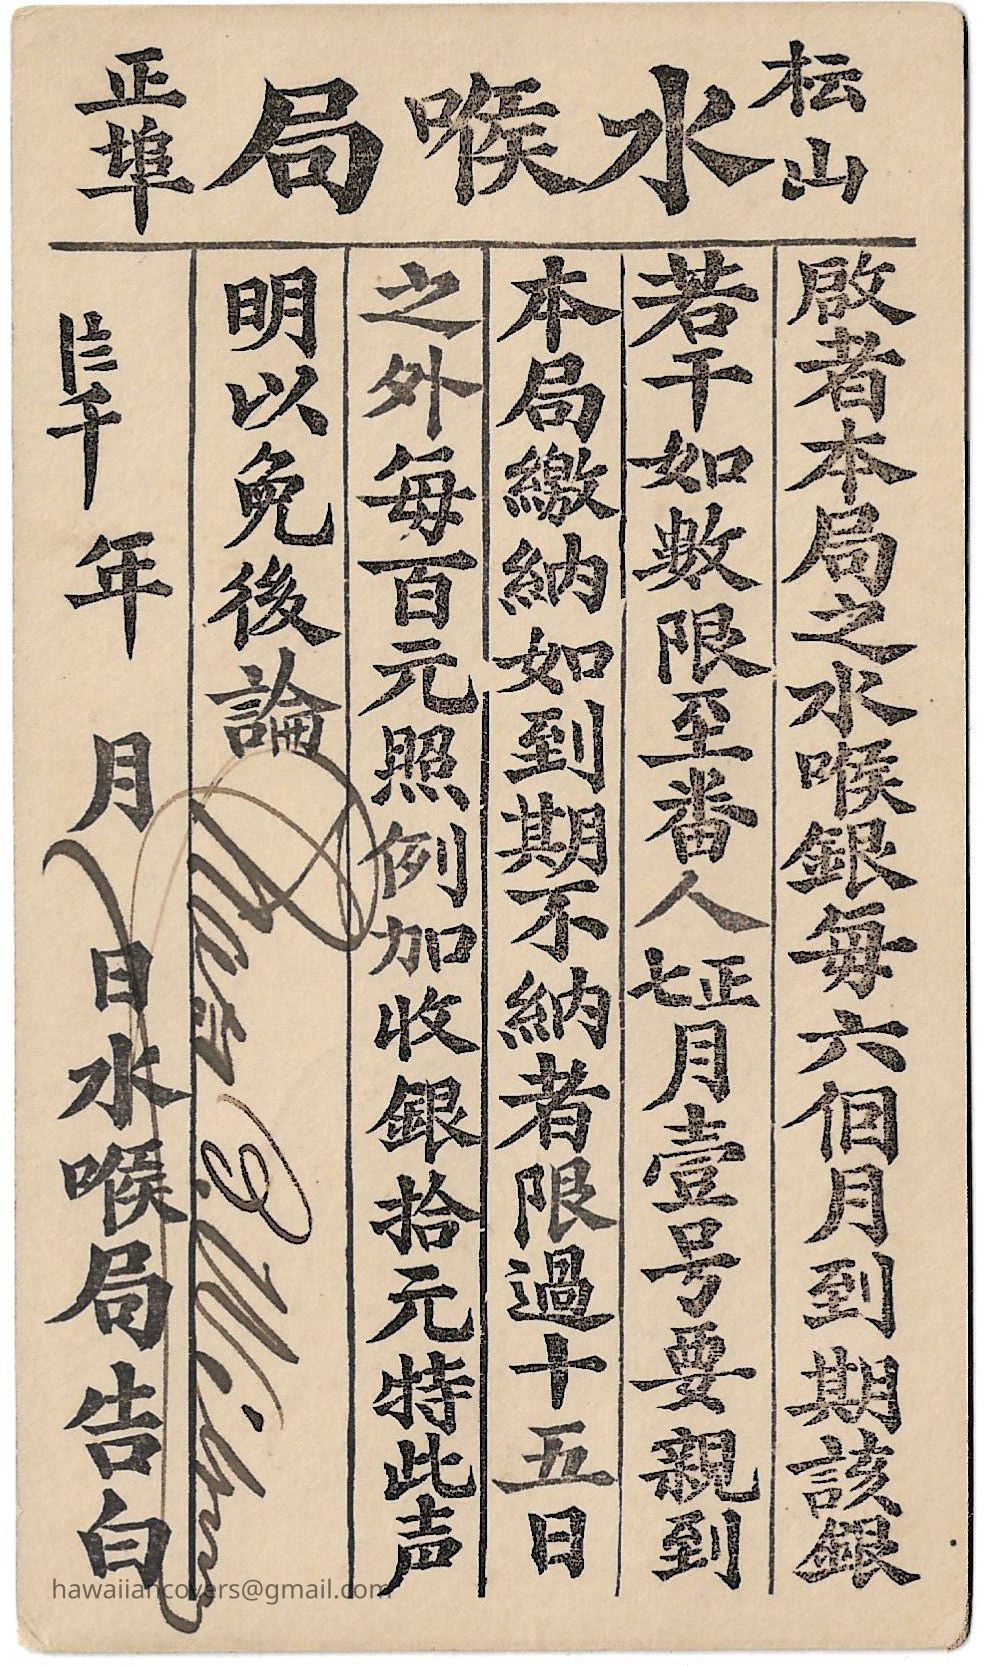 枟山 水喉局 正埠
啟者本局之水喉銀每六個月到期該銀
若干如數限至番人正七月壹号要親到
本局繳納如到期不納者限過十五日
之外每百元照例加收銀拾元特此声
明以免後論
年 月 日水喉局告白
Chas. B. Wilson
hawaiiancovers@gmail.com